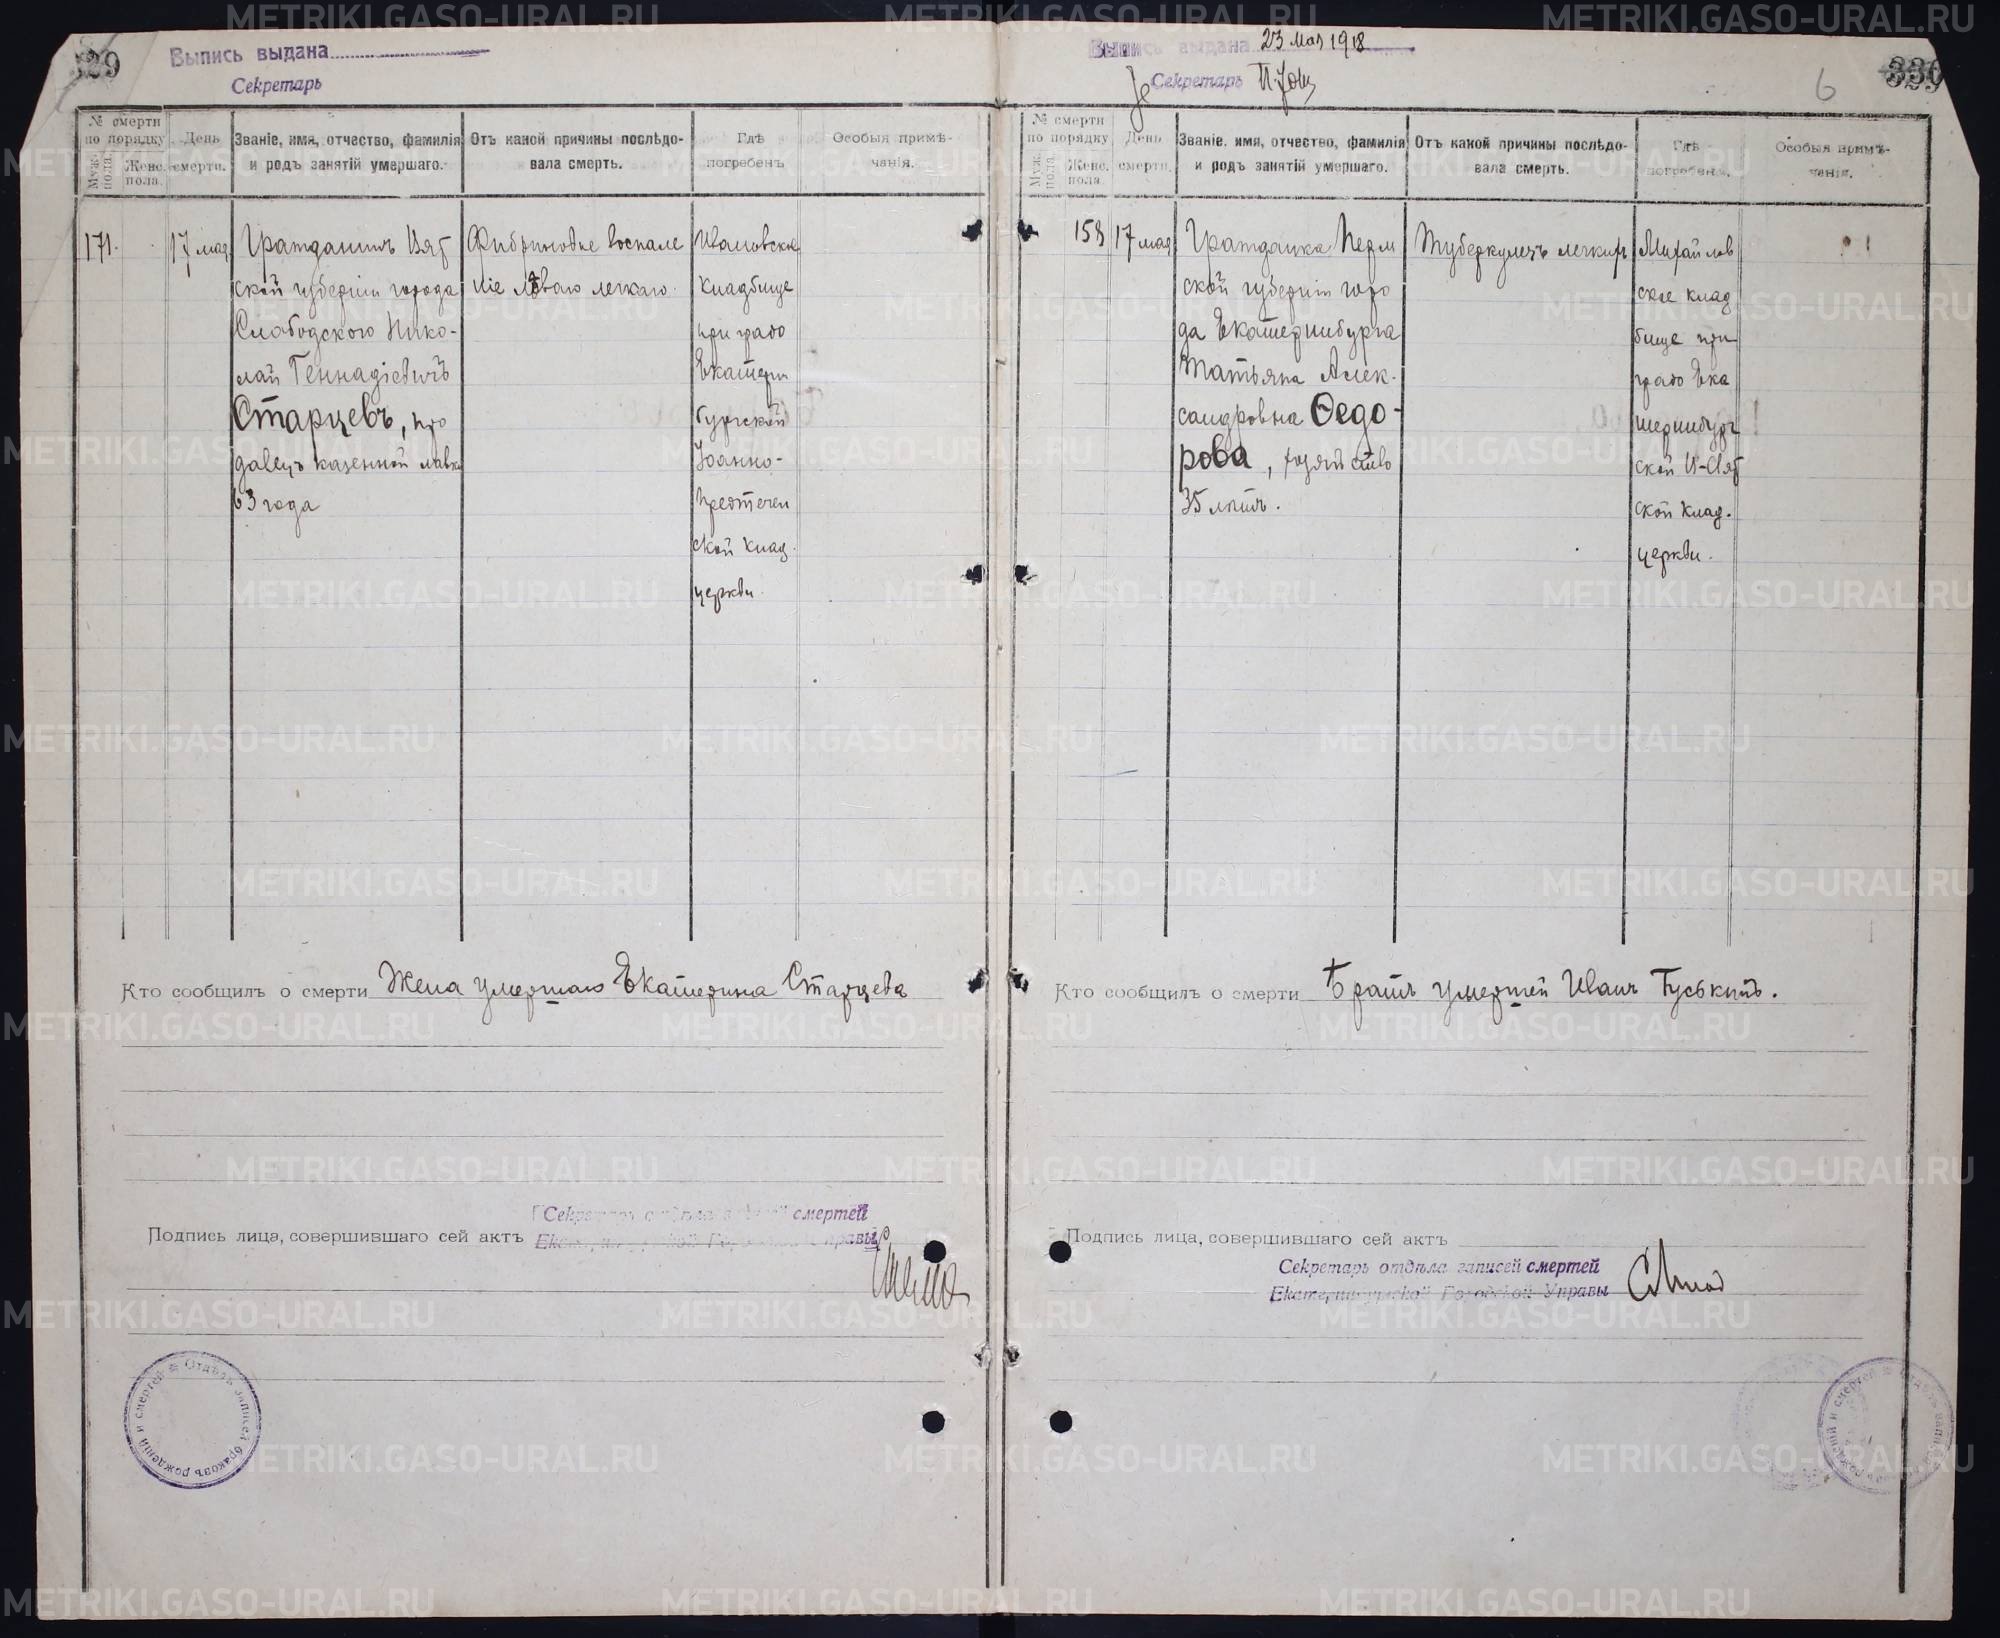 329
Выпись выдана
Секретарь
№ смерти по порядку
Муж. пола.
Женс. пола.
День смерти.
Званіе, имя, отчество, фамилія и родъ занятій умершаго.
Отъ какой причины послѣдовала смерть.
Гдѣ погребенъ
Особыя примѣчанія.
171.
17 мая
Гражданинъ Вят
ской губерніи города
Слободского Нико-
лай Геннадіевичъ
Старцевъ, про
давецъ казенной лавки
63 года
Фибринозное воспале
ніе лѣваго легкаго.
Ивановское
кладбище
при градо
Екатерин
бургской
Іоанно-
Предтечен
ской клад.
церкви.
Кто сообщилъ о смерти Жена умершаго Екатерина Старцева
Секретарь отдѣла записей смертей
Подпись лица, совершившаго сей актъ Екатеринбургской Городской Управы
Отдѣлъ записей браковъ рожденій и смертей
330
6
Выпись выдана 23 мая 1918
Секретарь
№ смерти по порядку
Муж. пола.
Женс. пола.
День смерти.
Званіе, имя, отчество, фамилія и родъ занятій умершаго.
Отъ какой причины послѣдовала смерть.
Гдѣ погребенъ.
Особыя примѣчанія.
158
17 мая
Гражданка Перм
ской губерніи горо
да Екатеринбурга
Татьяна Алек-
сандровна Ѳедо-
рова, хозяйство
35 лѣтъ.
Туберкулезъ легкихъ
Михайлов
ское клад
бище при
градо Ека
теринбург
ской
ской клад.
церкви.
Кто сообщилъ о смерти Братъ умершей Иванъ Гуськинъ.
Подпись лица, совершившаго сей актъ
Секретарь отдѣла записей смертей
Екатеринбургской Городской Управы
Отдѣлъ записей браковъ рожденій и смертей
METRIKI.GASO-URAL.RU